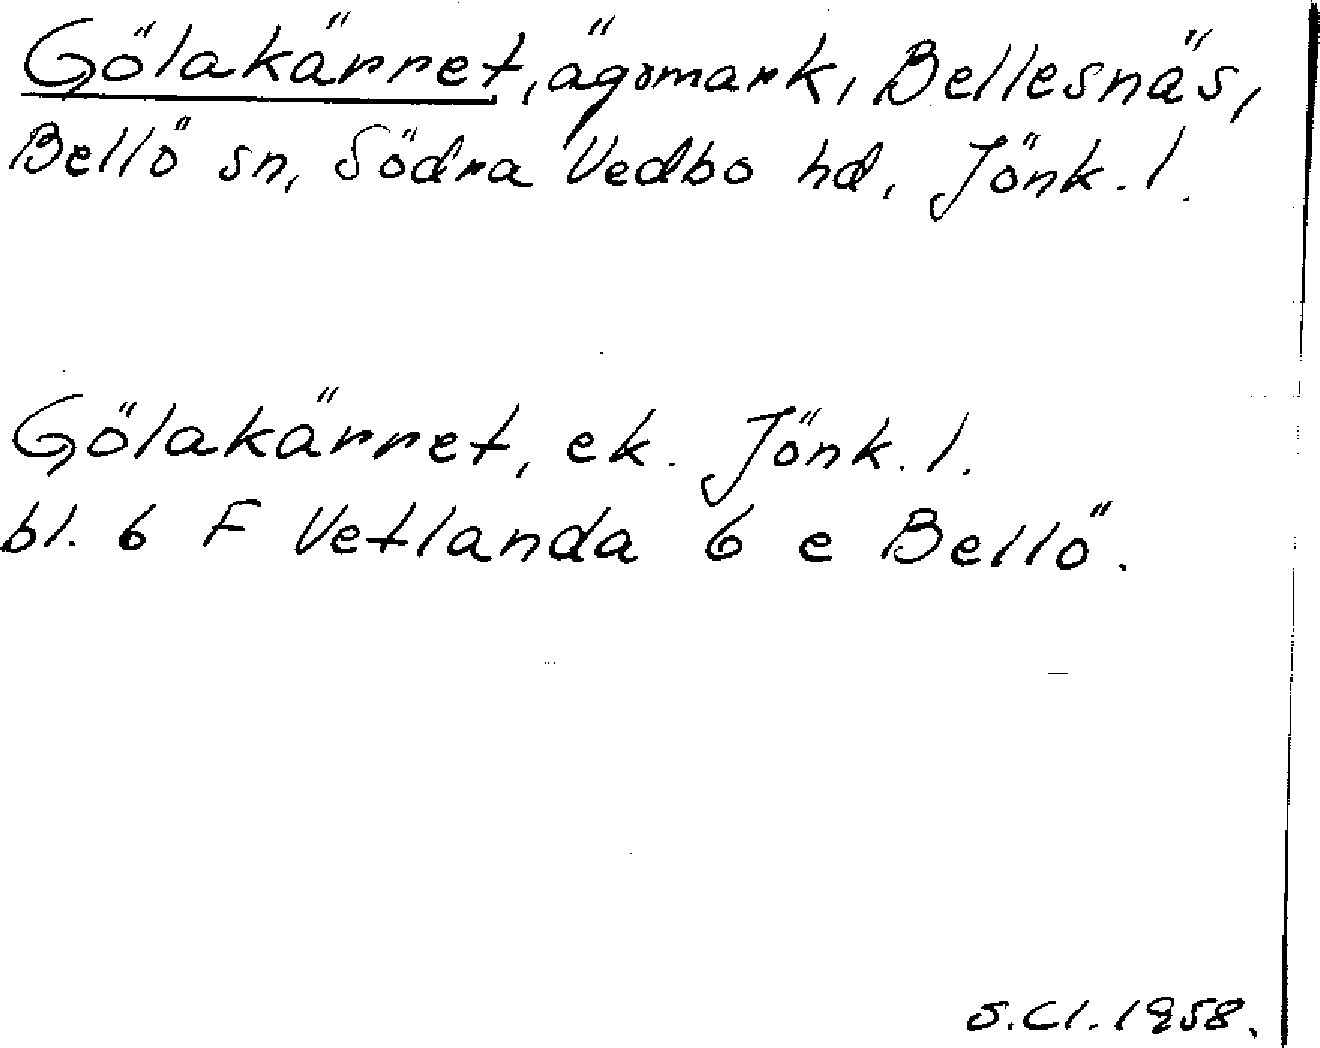 Gölakärret, ägomark, Bellesnäs,
Bellö sn, Södra Vedbo hd, Jönk. l.
Gölakärret, ek. Jönk. l.
bl. 6 F Vetlanda 6 e Bellö.
S.Cl. 1958.